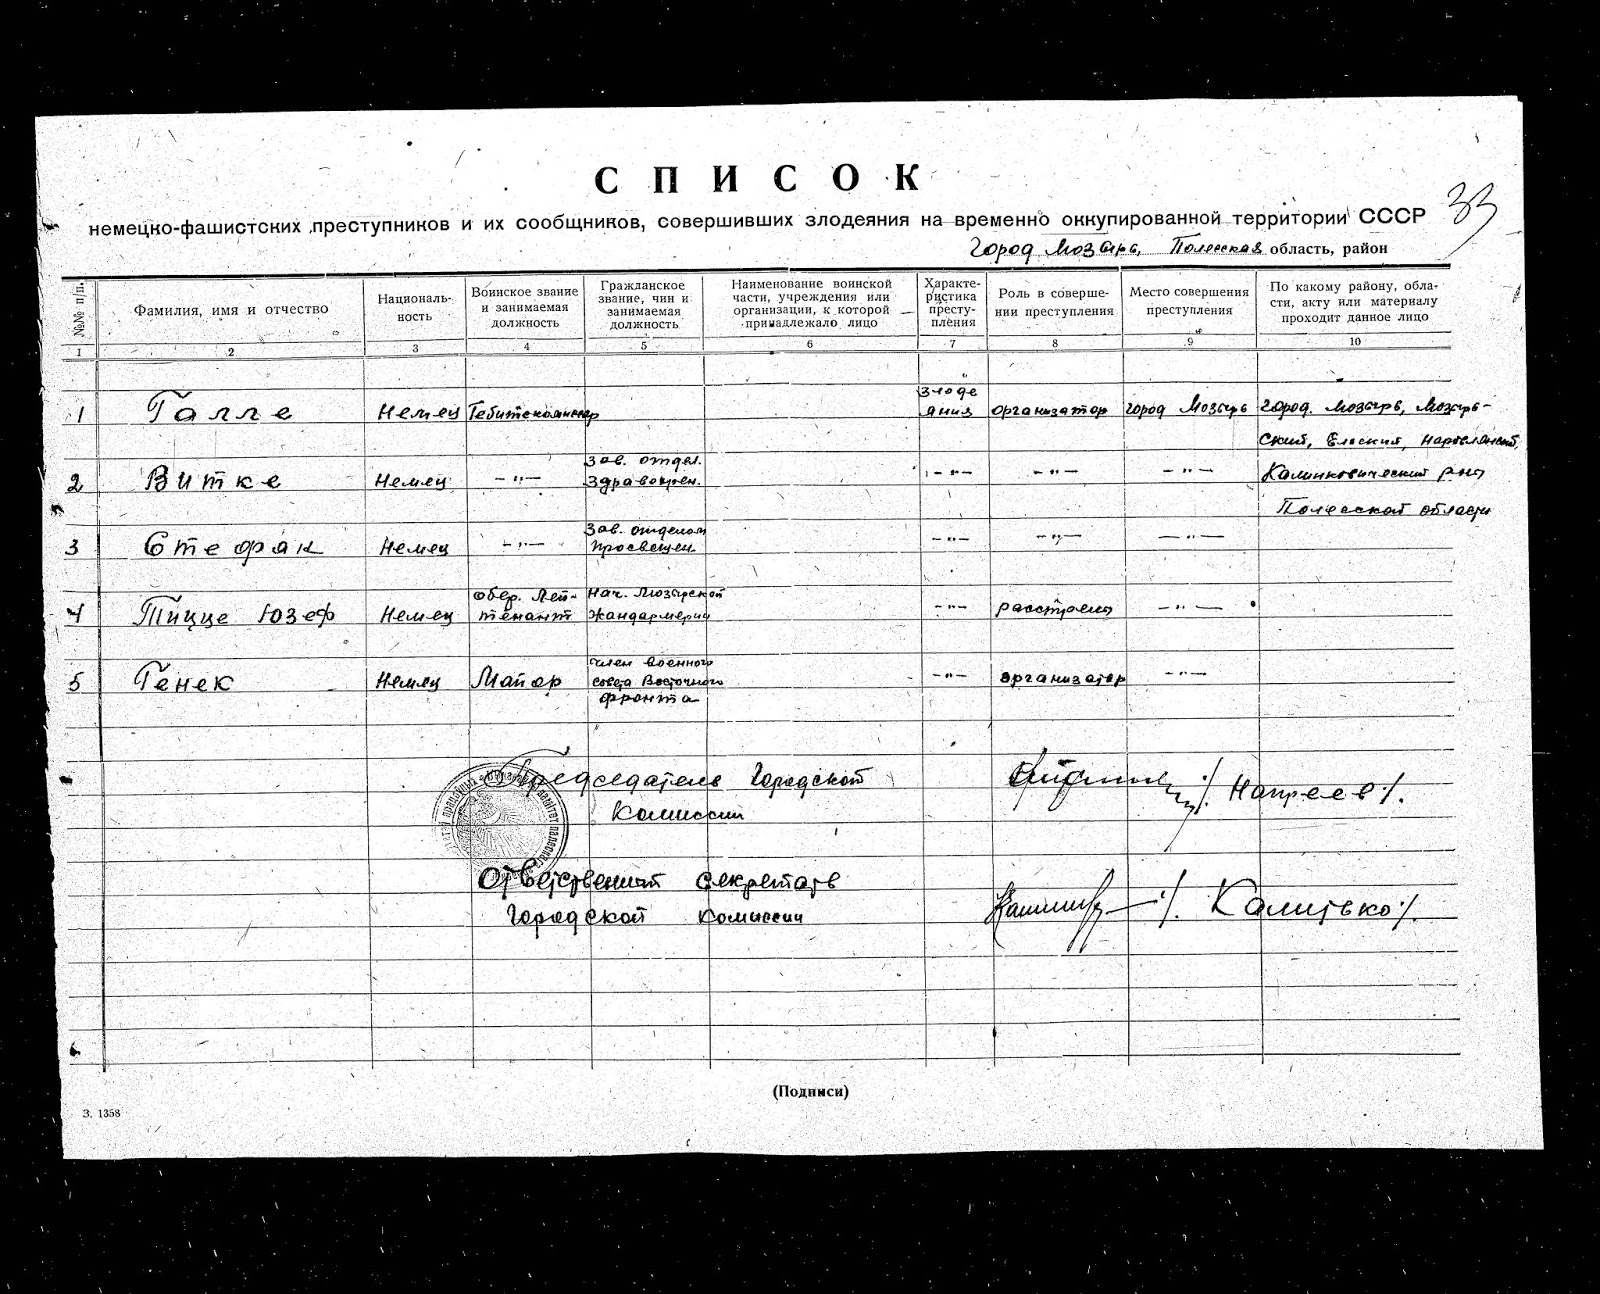 СПИСОК
33
немецко-фашистских преступников и их сообщников, совершивших злодеяния на временно оккупированной территории СССР
Город Мозырь, Полесская область, район
№№ п/п.
Фамилия, имя и отчество
Националь-
ность
Воинское звание
и занимаемая
должность
Гражданское
звание, чин и
занимаемая
должность
Наименование воинской
части, учреждения или
организации, к которой
принадлежало лицо
Характе-
ристика
престу-
пления
Роль в соверше-
нии преступления
Место совершения
преступления
По какому району, обла-
сти, акту или материалу
проходит данное лицо
1 2 3 4 5 6 7 8 9 10
злоде
1 Галле Немец Гебитскомиссар яния организатор город Мозырь Город. Мозырь, Мозырь-
ский, Ельский, Наровлянский,
зав. отдел.
2 Витке Немец —„— здравохрен. —„— —„— —„— Калинковический р-на
Полесской области
Зав. отделом
3 Стефан Немец —„— Просвещен. —„— —„— —„—
обер. Лей- Нач. Мозырской
4 Тицце Юзеф Немец тенант Жандармерии —„— расстрелы —„—
член военного
5 Генек Немец Майор совета Восточного —„— организатор —„—
фронта
Председатель Городской
Комиссии
/Напреев/.
Ответственный секретарь
Городской комиссии
/Калитько/.
(Подписи)
З. 1358